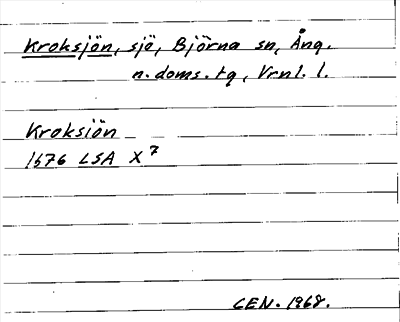 Kroksjön, sjö, Björna sn, Ång.
n. doms. tg, Vrnl. l.
Kroksiön
1676 LSA X 7
CEN. 1968.